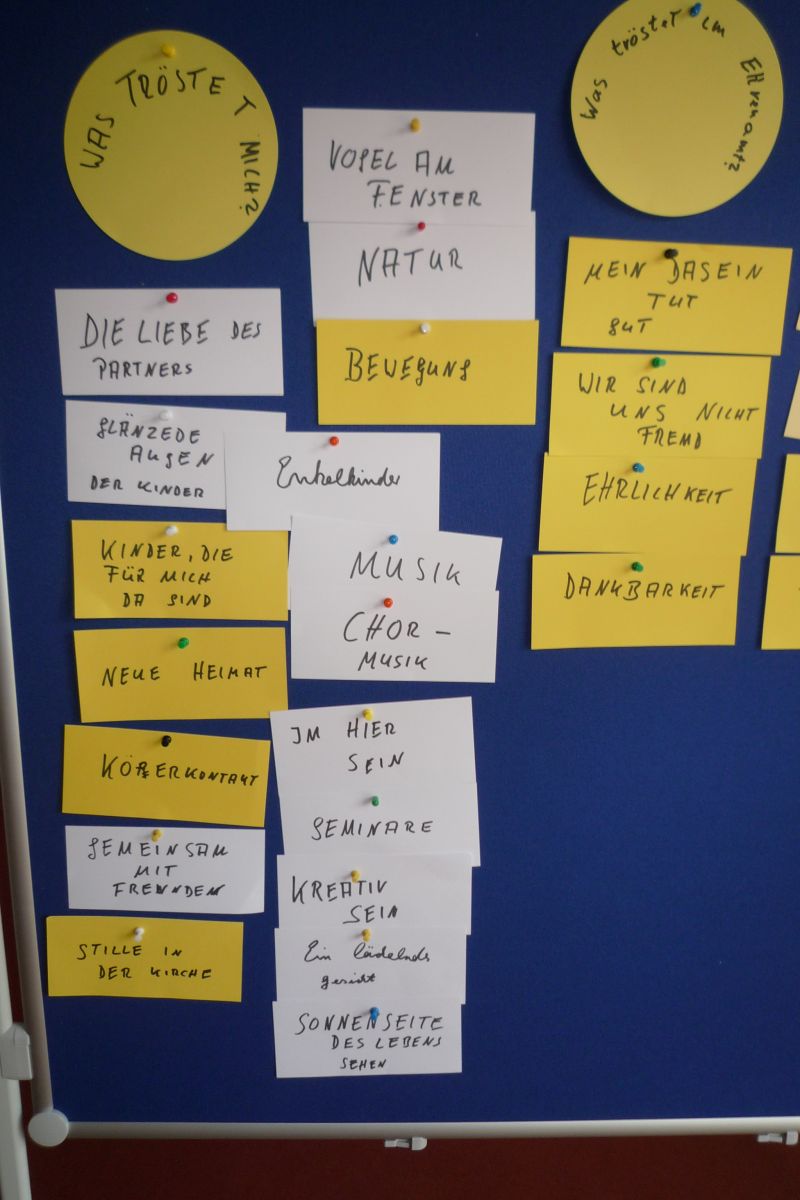 WAS TRÖSTET MICH?
DIE LIEBE DES
PARTNERS
GLÄNZEDE
AUGEN
DER KINDER
KINDER, DIE
FÜR MICH
DA SIND
NEUE HEIMAT
KÖRPERKONTAKT
GEMEINSAM
MIT
FREUNDEN
STILLE IN
DER KIRCHE
VOGEL AM
FENSTER
NATUR
BEWEGUNG
Enkelkinder
MUSIK
CHOR-
MUSIK
IM HIER
SEIN
SEMINARE
KREATIV
SEIN
Ein lädelnds
gesicht
SONNENSEITE
DES LEBENS
SEHEN
Was tröstet im Ehrenamt?
MEIN DASEIN
TUT
GUT
WIR SIND
UNS NICHT
FREMD
EHRLICHKEIT
DANKBARKEIT